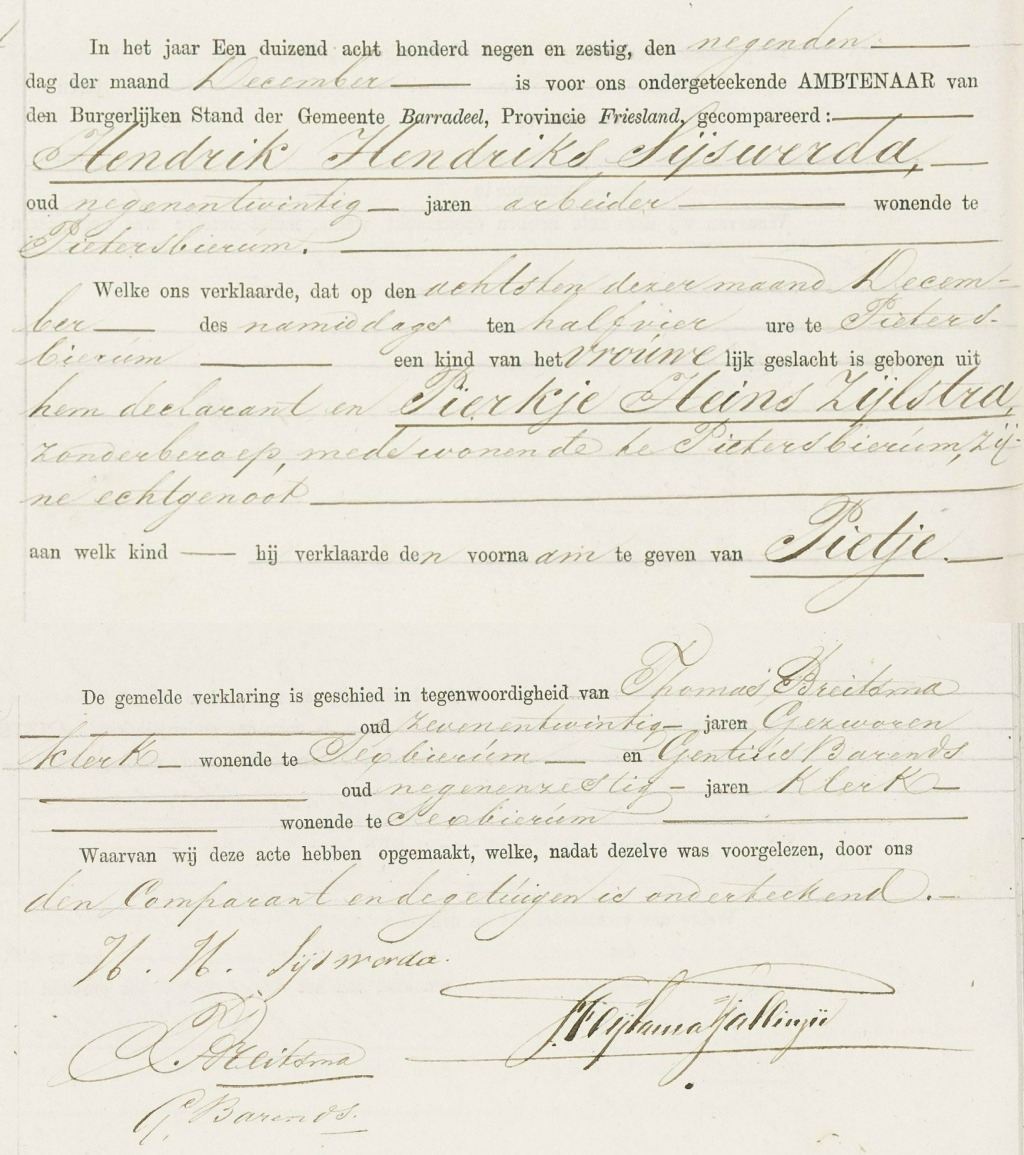 In het jaar Een duizend acht honderd negen en zestig, den negenden
dag der maand December is voor ons ondergeteekende AMBTENAAR van
den Burgerlijken Stand der Gemeente Barradeel, Provincie Friesland, gecompareerd:
Hendrik Hendriks Sijswerda,
oud negenentwintig jaren arbeider wonende te
Pietersbierum.
Welke ons verklaarde, dat op den achtsten dezer maand Decem-
ber des namiddags ten half vier ure te Pieters-
bierum een kind van het vrouwe lijk geslacht is geboren uit
hem declarant en Pierkje Heins Zijlstra,
zonder beroep, mede wonende te Pietersbierum, zij-
ne echtgenoot
aan welk kind hij verklaarde den voornaam te geven van Pietje.
De gemelde verklaring is geschied in tegenwoordigheid van Thomas Breitsma
oud zevenentwintig jaren Gezworen
klerk wonende te Sexbierum en Gentius Barends
oud negenenzestig jaren Klerk
wonende te Sexbierum
Waarvan wij deze acte hebben opgemaakt, welke, nadat dezelve was voorgelezen, door ons
den Comparant en de getuigen is onderteekend.
H. H. Sijswerda.
Breitsma
G. Barends.